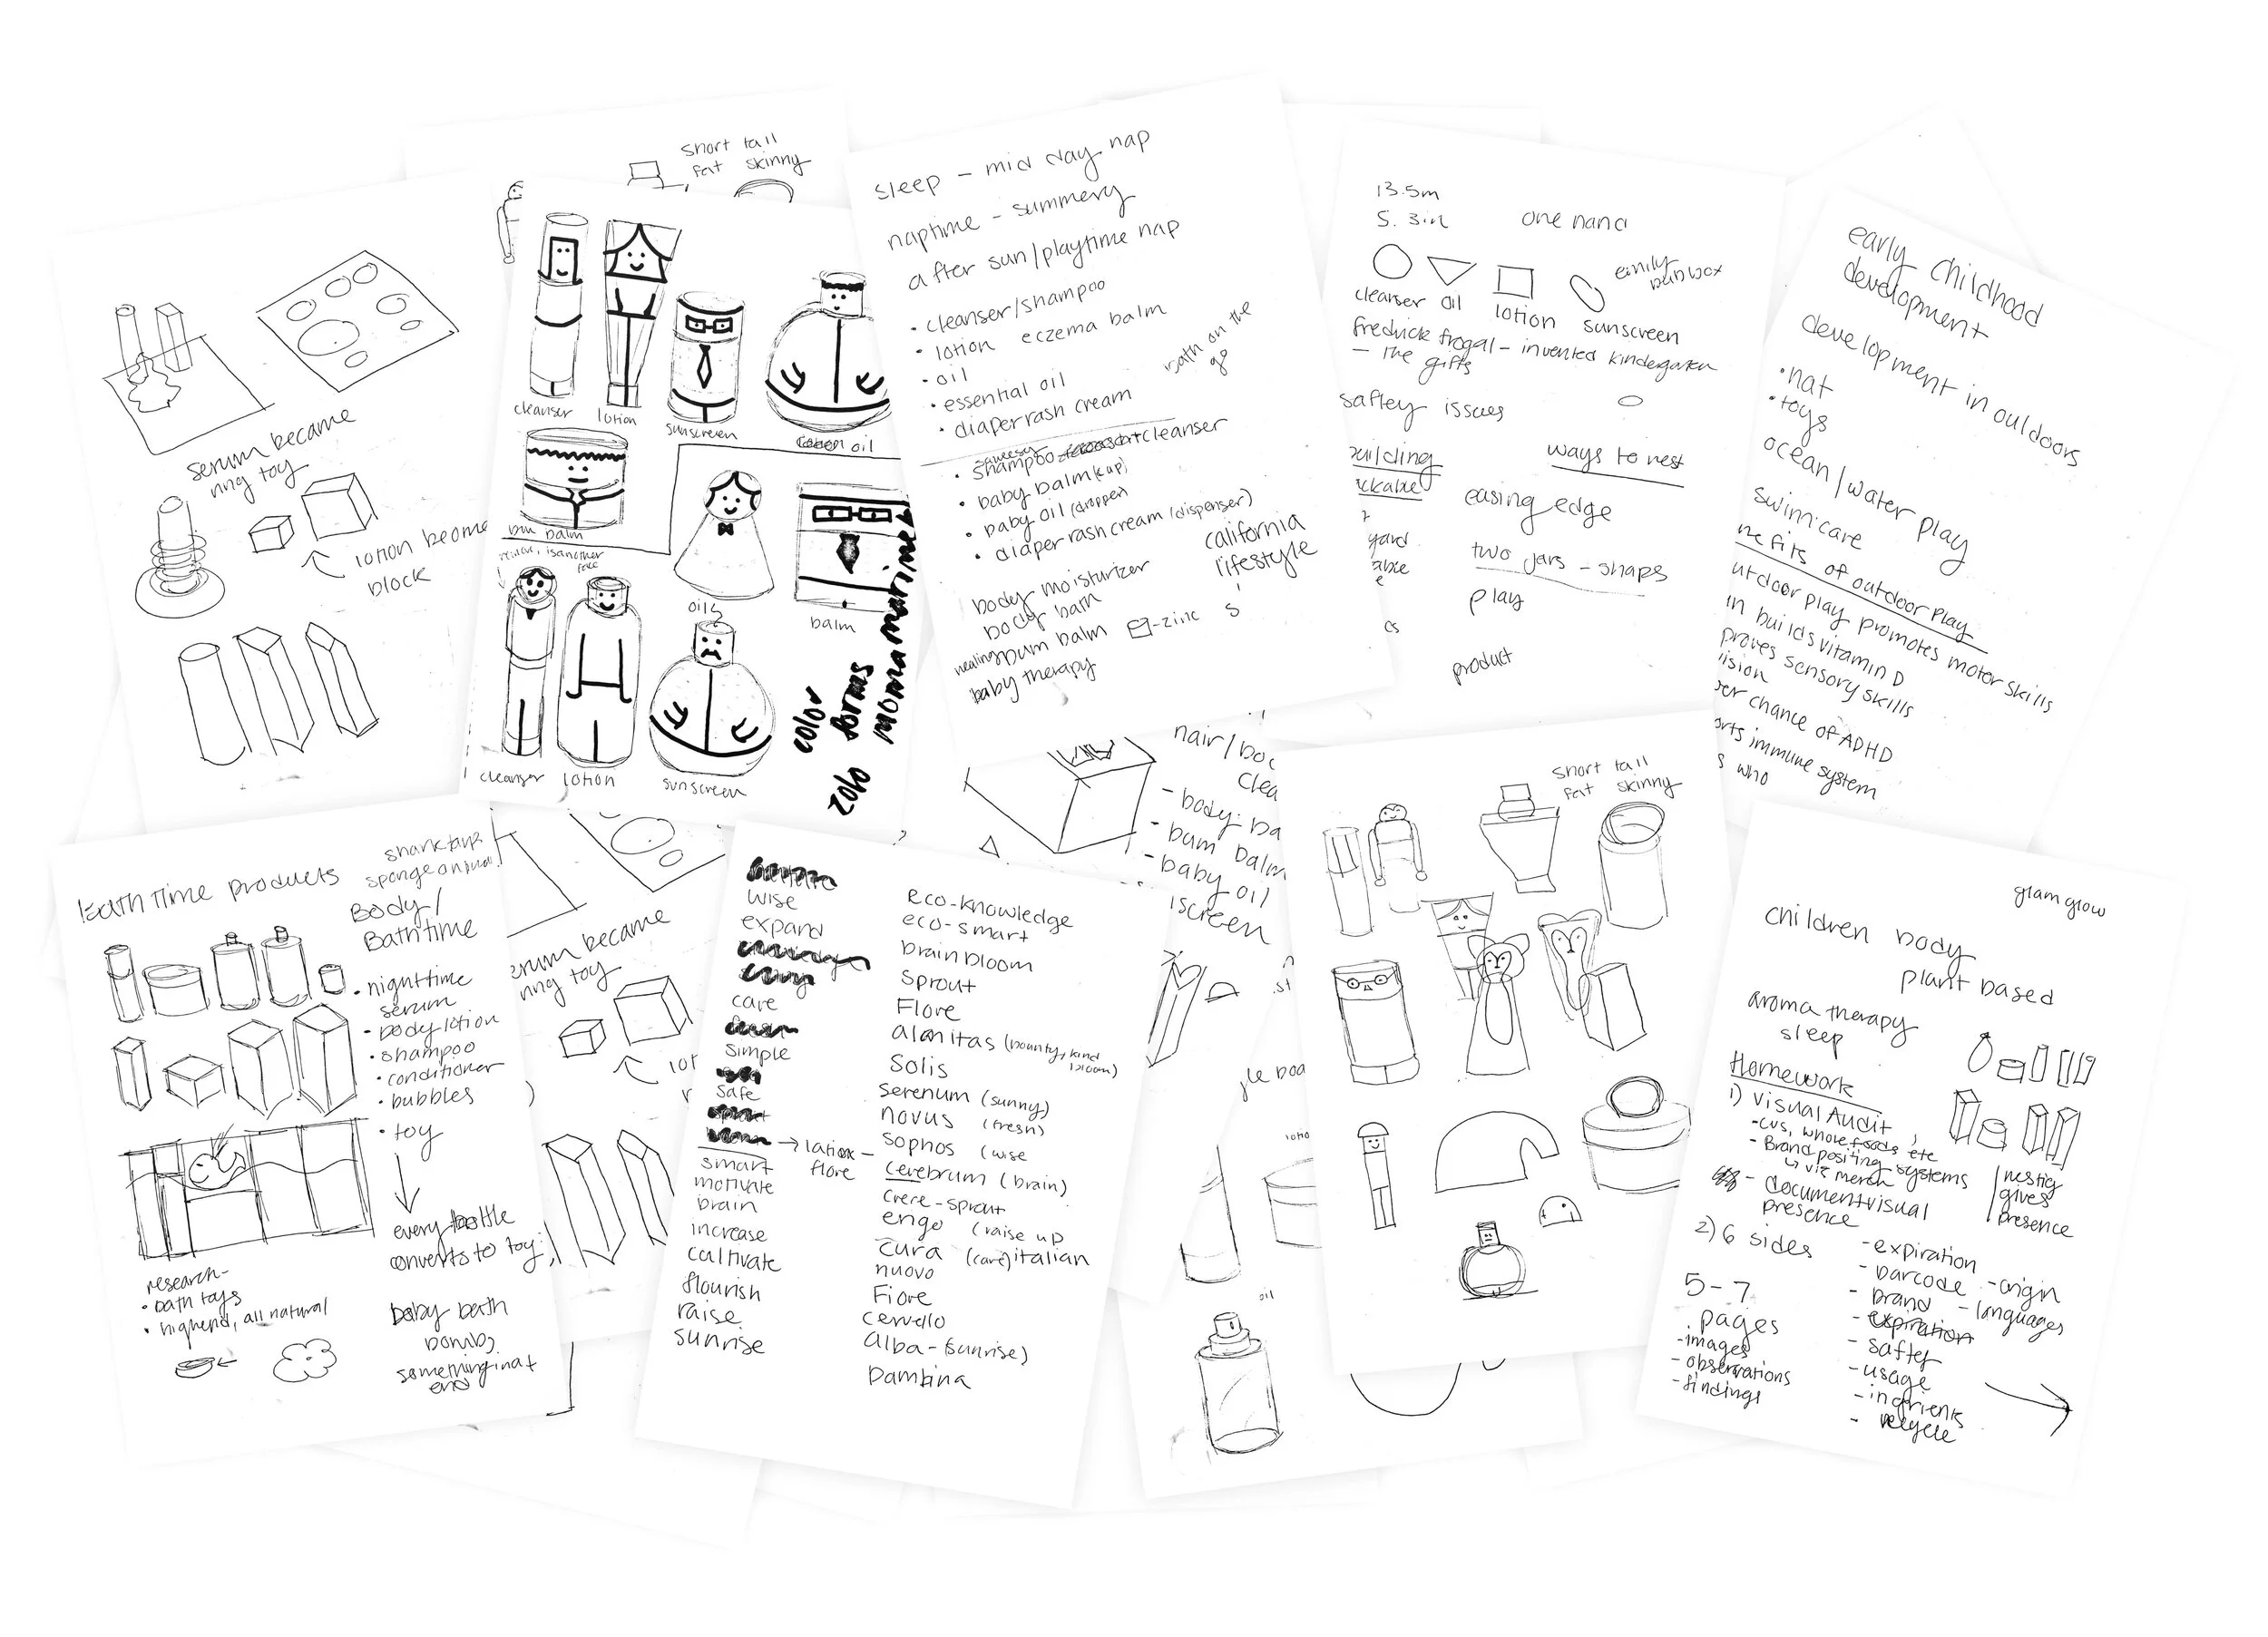 short tall
fat skinny
serum became
ring toy
lotion become
block
cleanser
lotion
sunscreen
oil
bum balm
oil
balm
cleanser
lotion
sunscreen
color
forms
moma marime
zolo
sleep - mid day nap
naptime - summery
after sun/playtime nap
• cleanser/shampoo
• lotion eczema balm
• oil
• essential oil
• diaper rash cream
bath on the
go
• shampoo cleanser
• baby balm (cup)
• baby oil (dropper)
• diaper rash cream (dispenser)
california
lifestyle
body moisturizer
body bath
healing bum balm -zinc
baby therapy
13.5m
5.3in
one hand
cleanser oil lotion sunscreen
fredrick frogal - invented kindergarten
- the gifts
safley issues
building
ckable
yard
able
ways to nest
easing edge
two jars - shaps
play
product
early childhood
development
development in outdoors
• nat
• toys
ocean/water play
swim care
nefits of outdoor play
utdoor play promotes motor skills
n builds vitamin D
proves sensory skills
ision
er chance of ADHD
orts immune system
s who
bath time products
Body/
Bathtime
• nighttime
serum
• body lotion
• shampoo
• conditioner
• bubbles
• toy
every bottle
converts to toy
research-
• bath toys
• highend, all natural
baby bath
bombs
something in at
end
erum became
ring toy
lot
wise
expand
care
simple
safe
→ latin -
flore
smart
motivate
brain
increase
cultivate
flourish
raise
sunrise
eco-knowledge
eco-smart
brainbloom
sprout
Flore
almitas (bounty, kind
bloom)
Solis
serenum (sunny)
novus (fresh)
sophos (wise
cerebrum (brain)
crere-sprout
engo (raise up
cura (care) italian
nuovo
Fiore
cervello
alba-(sunrise)
bambina
hair/bo
clea
- body ba
- bum balm
- baby oil
nscreen
oil
short tall
fat skinny
glam glow
children body
plant based
aroma therapy
sleep
Homework
1) Visual Audit
- cvs, whole foods, etc
- Brand positing systems
↳ viz merch
- document visual
presence
nestig
gives
presence
2) 6 sides
5-7
pages
- images
- observations
- findings
- expiration
- barcode
- brand
- expiration
- saftey
- usage
- ingrients
- recycle
- origin
- languages